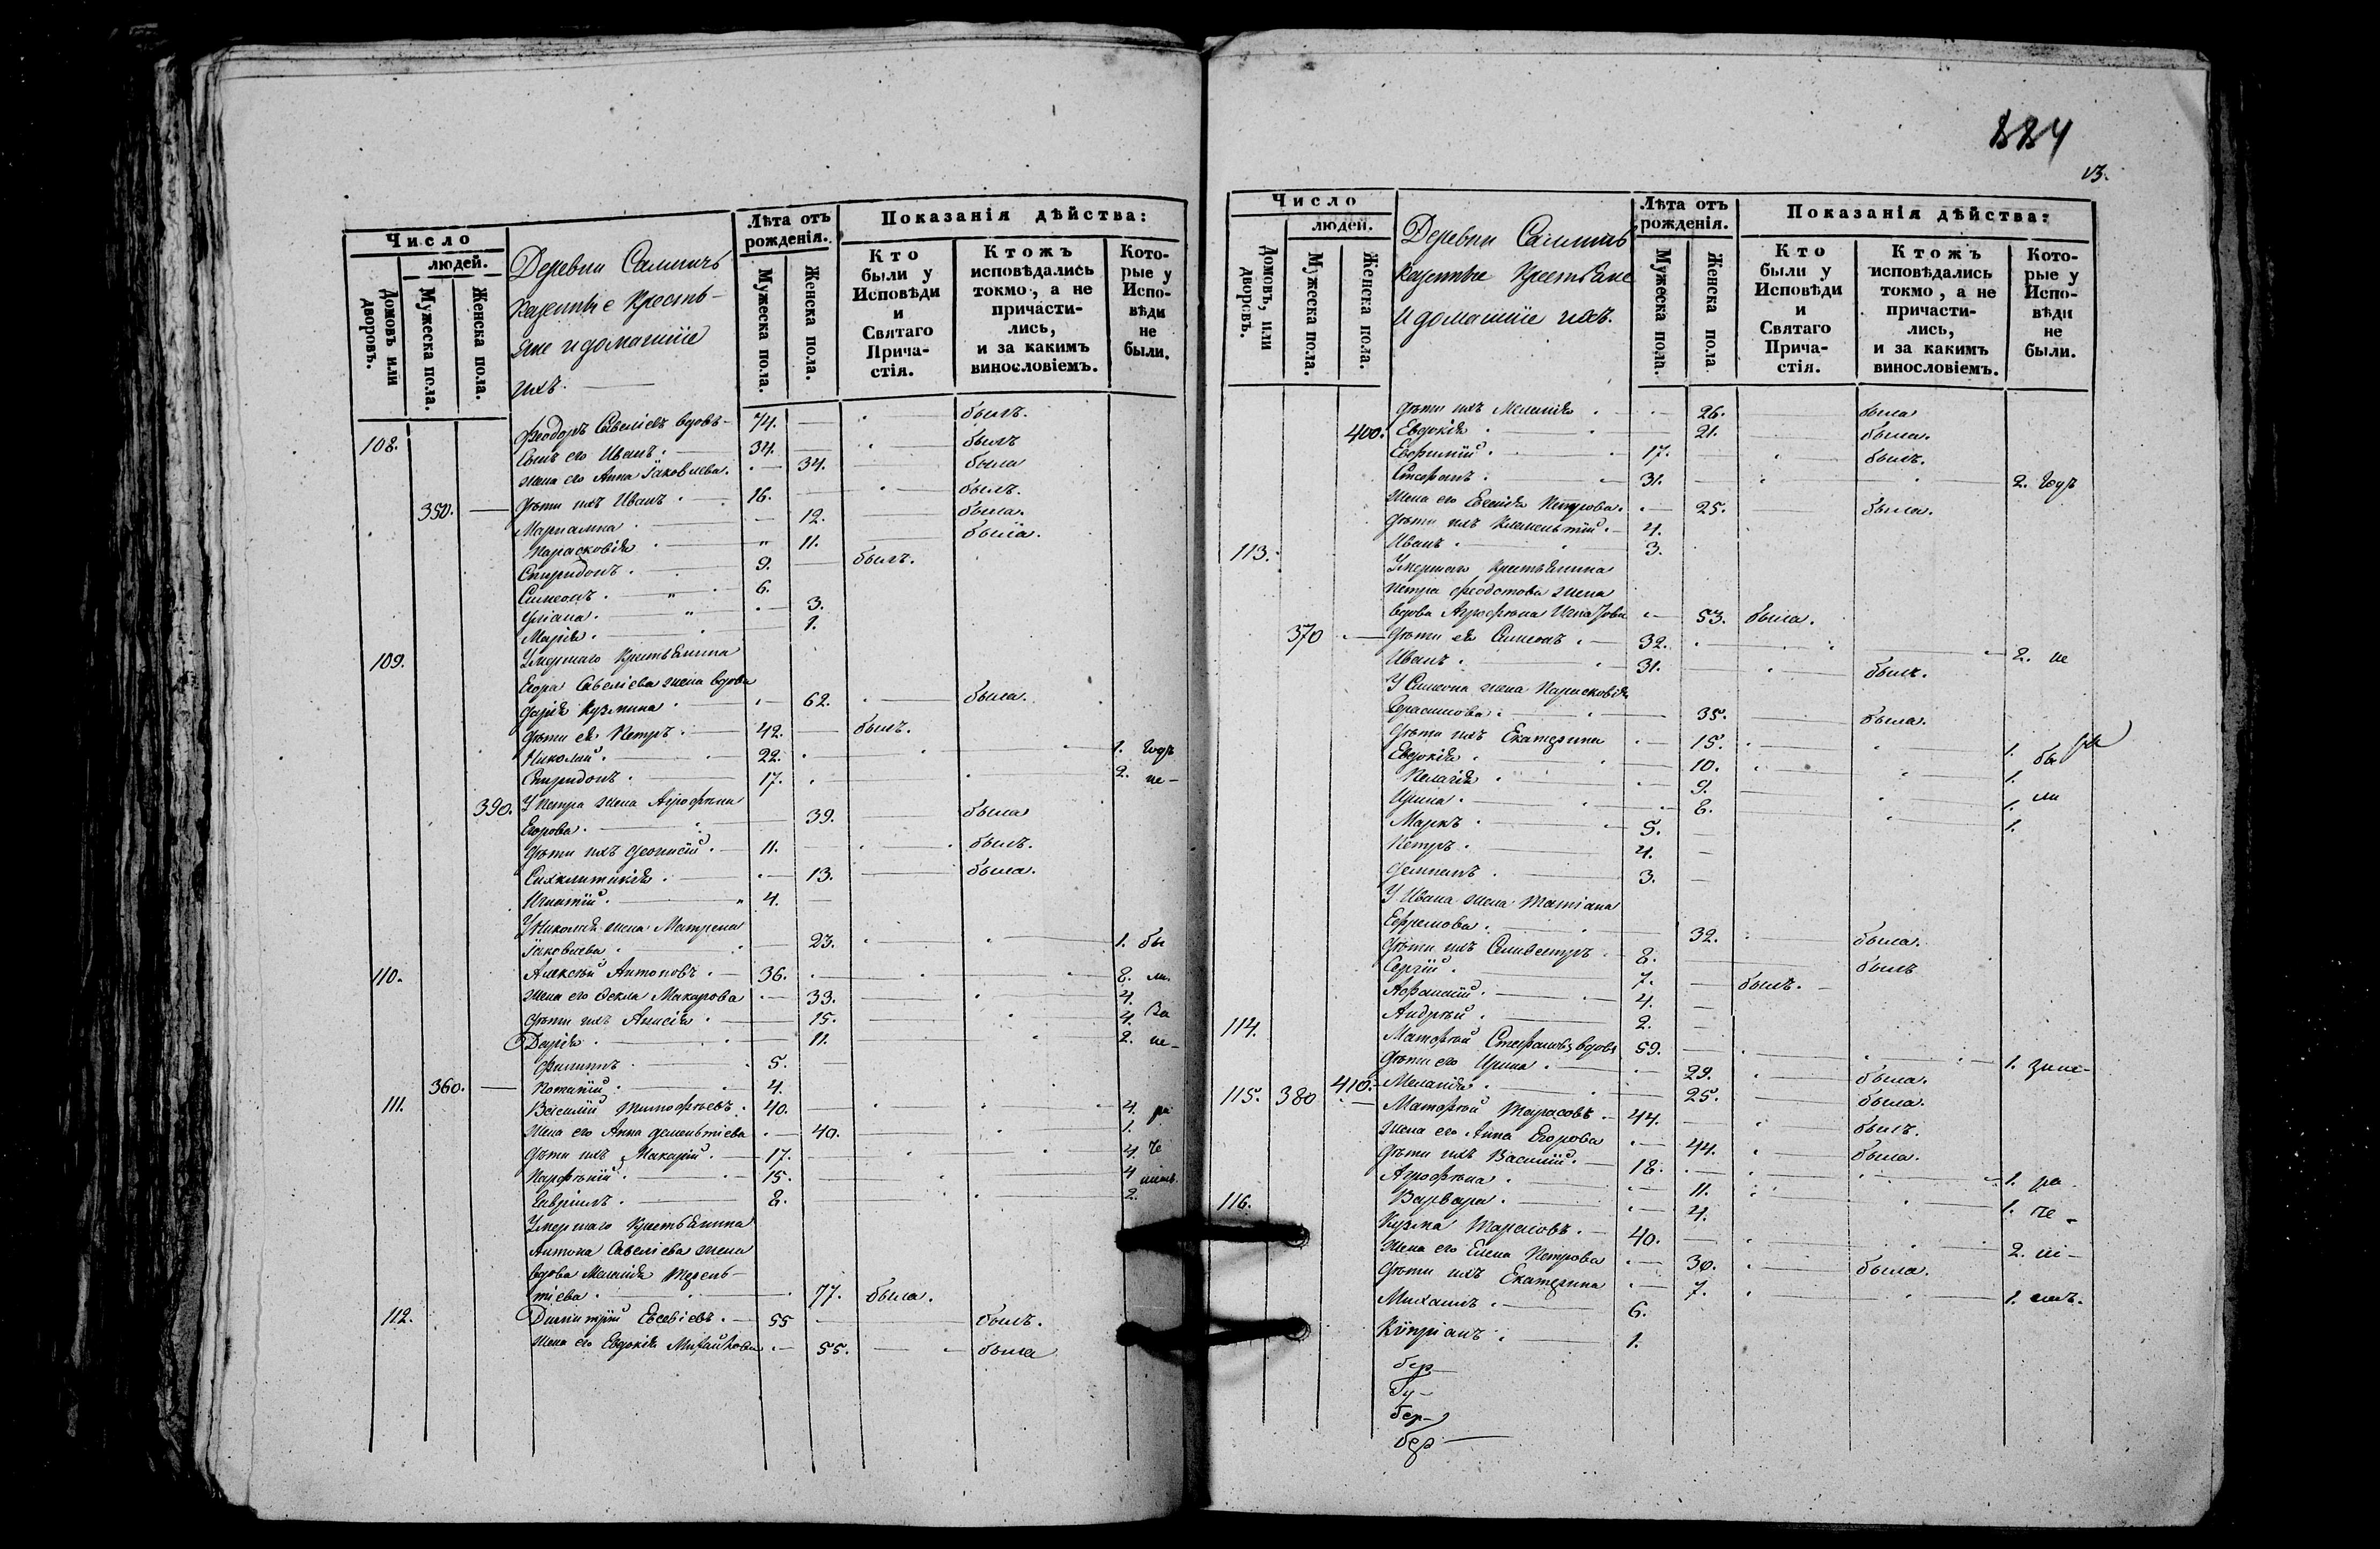 884
13.
Число
людей.
Домовъ или дворовъ.
Мужеска пола.
Женска пола.
Деревни
казенные кресть-
яне и домашніе
ихъ.
Лѣта отъ рожденія.
Мужеска пола.
Женска пола.
Показанія дѣйства:
Кто были у Исповѣди и Святаго Причастія.
Ктожъ исповѣдались токмо, а не причастились, и за какимъ винословіемъ.
Которые у Исповѣди не были.
108. Феодоръ Савеліевъ вдовъ 74. былъ.
Сынъ его Иванъ. 34. былъ
жена его Анна Іаковлева. 34. была
350. дѣти ихъ Иванъ 16. былъ.
Маріамна 12. была.
Парасковія 11. была.
Спиридонъ. 9. былъ.
Симеонъ. 6.
Уліана. 3.
Марія. 1.
109. Умершаго крестьянина
Егора Савеліева жена вдова
Дарія Кузмина 62. была.
дѣти ея Петръ. 42. былъ.
Николай. 22. 1. годъ
Спиридонъ. 17. 2. не-
390. У Петра жена Агрофѣна
Егорова. 39. была
дѣти ихъ Деонисій. 11. былъ.
Сихклитикія. 13. была.
Игнатій. 4.
У Николая жена Матрена
Іаковлева 23. 1. бы
110. Алексѣй Антоновъ. 36. 2. ли.
жена его Ѳекла Макарова 33. 4.
дѣти ихъ Анисія 15. 4. За
Дарія. 11. 2. не-
Филиппъ 5.
360. Потапій 4.
111. Василій Тимофѣевъ. 40. 4. ра
жена его Анна Дементіева 40. 1.
дѣти ихъ Макарій. 17. 4. че
Парфѣній. 15. 4
Гавріилъ. 8. 2.
Умершаго крестьянина
Антона Савеліева жена
вдова Меланія Терень-
тіева 77. была.
112. Димитрій Евсевіевъ. 55 былъ.
жена его Евдокія Михайлова 55. была
Число
людей.
Домовъ, или дворовъ.
Мужеска пола.
Женска пола.
Деревни
казенные крестьяне
и домашніе ихъ.
Лѣта отъ рожденія.
Мужеска пола.
Женска пола
Показанія дѣйства:
Кто были у Исповѣди и Святаго Причастія.
Ктожъ исповѣдались токмо, а не причастились, и за какимъ винословіемъ.
Которые у Исповѣди не были.
дѣти ихъ Меланія 26. была
400. Евдокія 21. была.
Евфимій. 17. былъ.
Стефанъ. 31. 2. годъ
жена его Евгенія Петрова. 25. была.
дѣти ихъ Климентій. 4.
Иванъ. 3.
113. Умершаго крестьянина
Петра Феодотова жена
вдова Агрофѣна Игнатова 53. была.
370 дѣти ея Симеонъ. 32. 2. не
Иванъ. 31. былъ.
У Симеона жена Парасковія
35. была.
дѣти ихъ Екатерина 15. 1. бы
Евдокія. 10. 1.
Пелагія 9. 1. ли
Ирина. 8. 1.
Маркъ. 5.
Петръ. 4.
3.
У Ивана жена Татіана
Ефремова. 32. была.
дѣти ихъ Селивестръ 8. былъ
Сергій. 7. былъ.
Афанасій. 4.
Андрѣй 2.
114. Матфѣй Стефановъ вдовъ 59. 1.
дѣти его Ирина 29. была.
410. Меланія. 25. была.
115. 380 Матфѣй Тарасовъ. 44. былъ.
жена его Анна Егорова 44. была.
дѣти ихъ Василій. 18. 1. ра
Агрофѣна 11. 1. че
Варвара. 4.
116. Кузма Тарасовъ. 40. 2.
жена его Елена Петрова 30. была.
дѣти ихъ Екатерина 7. 1.
Михаилъ. 6.
Кипріанъ 1.